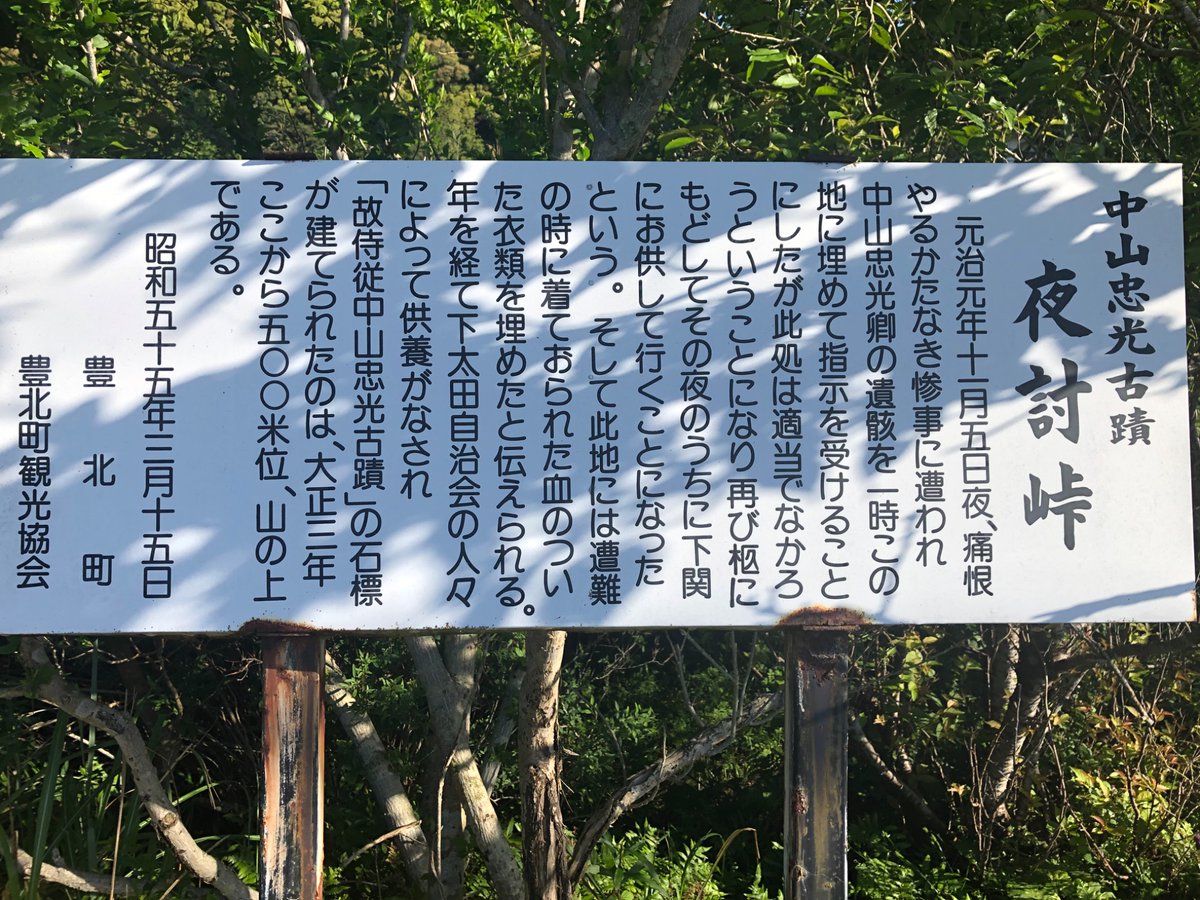 中山忠光古蹟
夜討峠
元治元年十一月五日夜、痛恨
やるかたなき惨事に遭われ
中山忠光卿の遺骸を一時この
地に埋めて指示を受けること
にしたが此処は適当でなかろ
うということになり再び柩に
もどしてその夜のうちに下関
にお供して行くことになった
という。そして此地には遭難
の時に着ておられた血のつい
た衣類を埋めたと伝えられる。
年を経て下太田自治会の人々
によって供養がなされ
「故侍従中山忠光古蹟」の石標
が建てられたのは、大正三年
ここから五〇〇米位、山の上
である。
昭和五十五年三月十五日
豊北町
豊北町観光協会